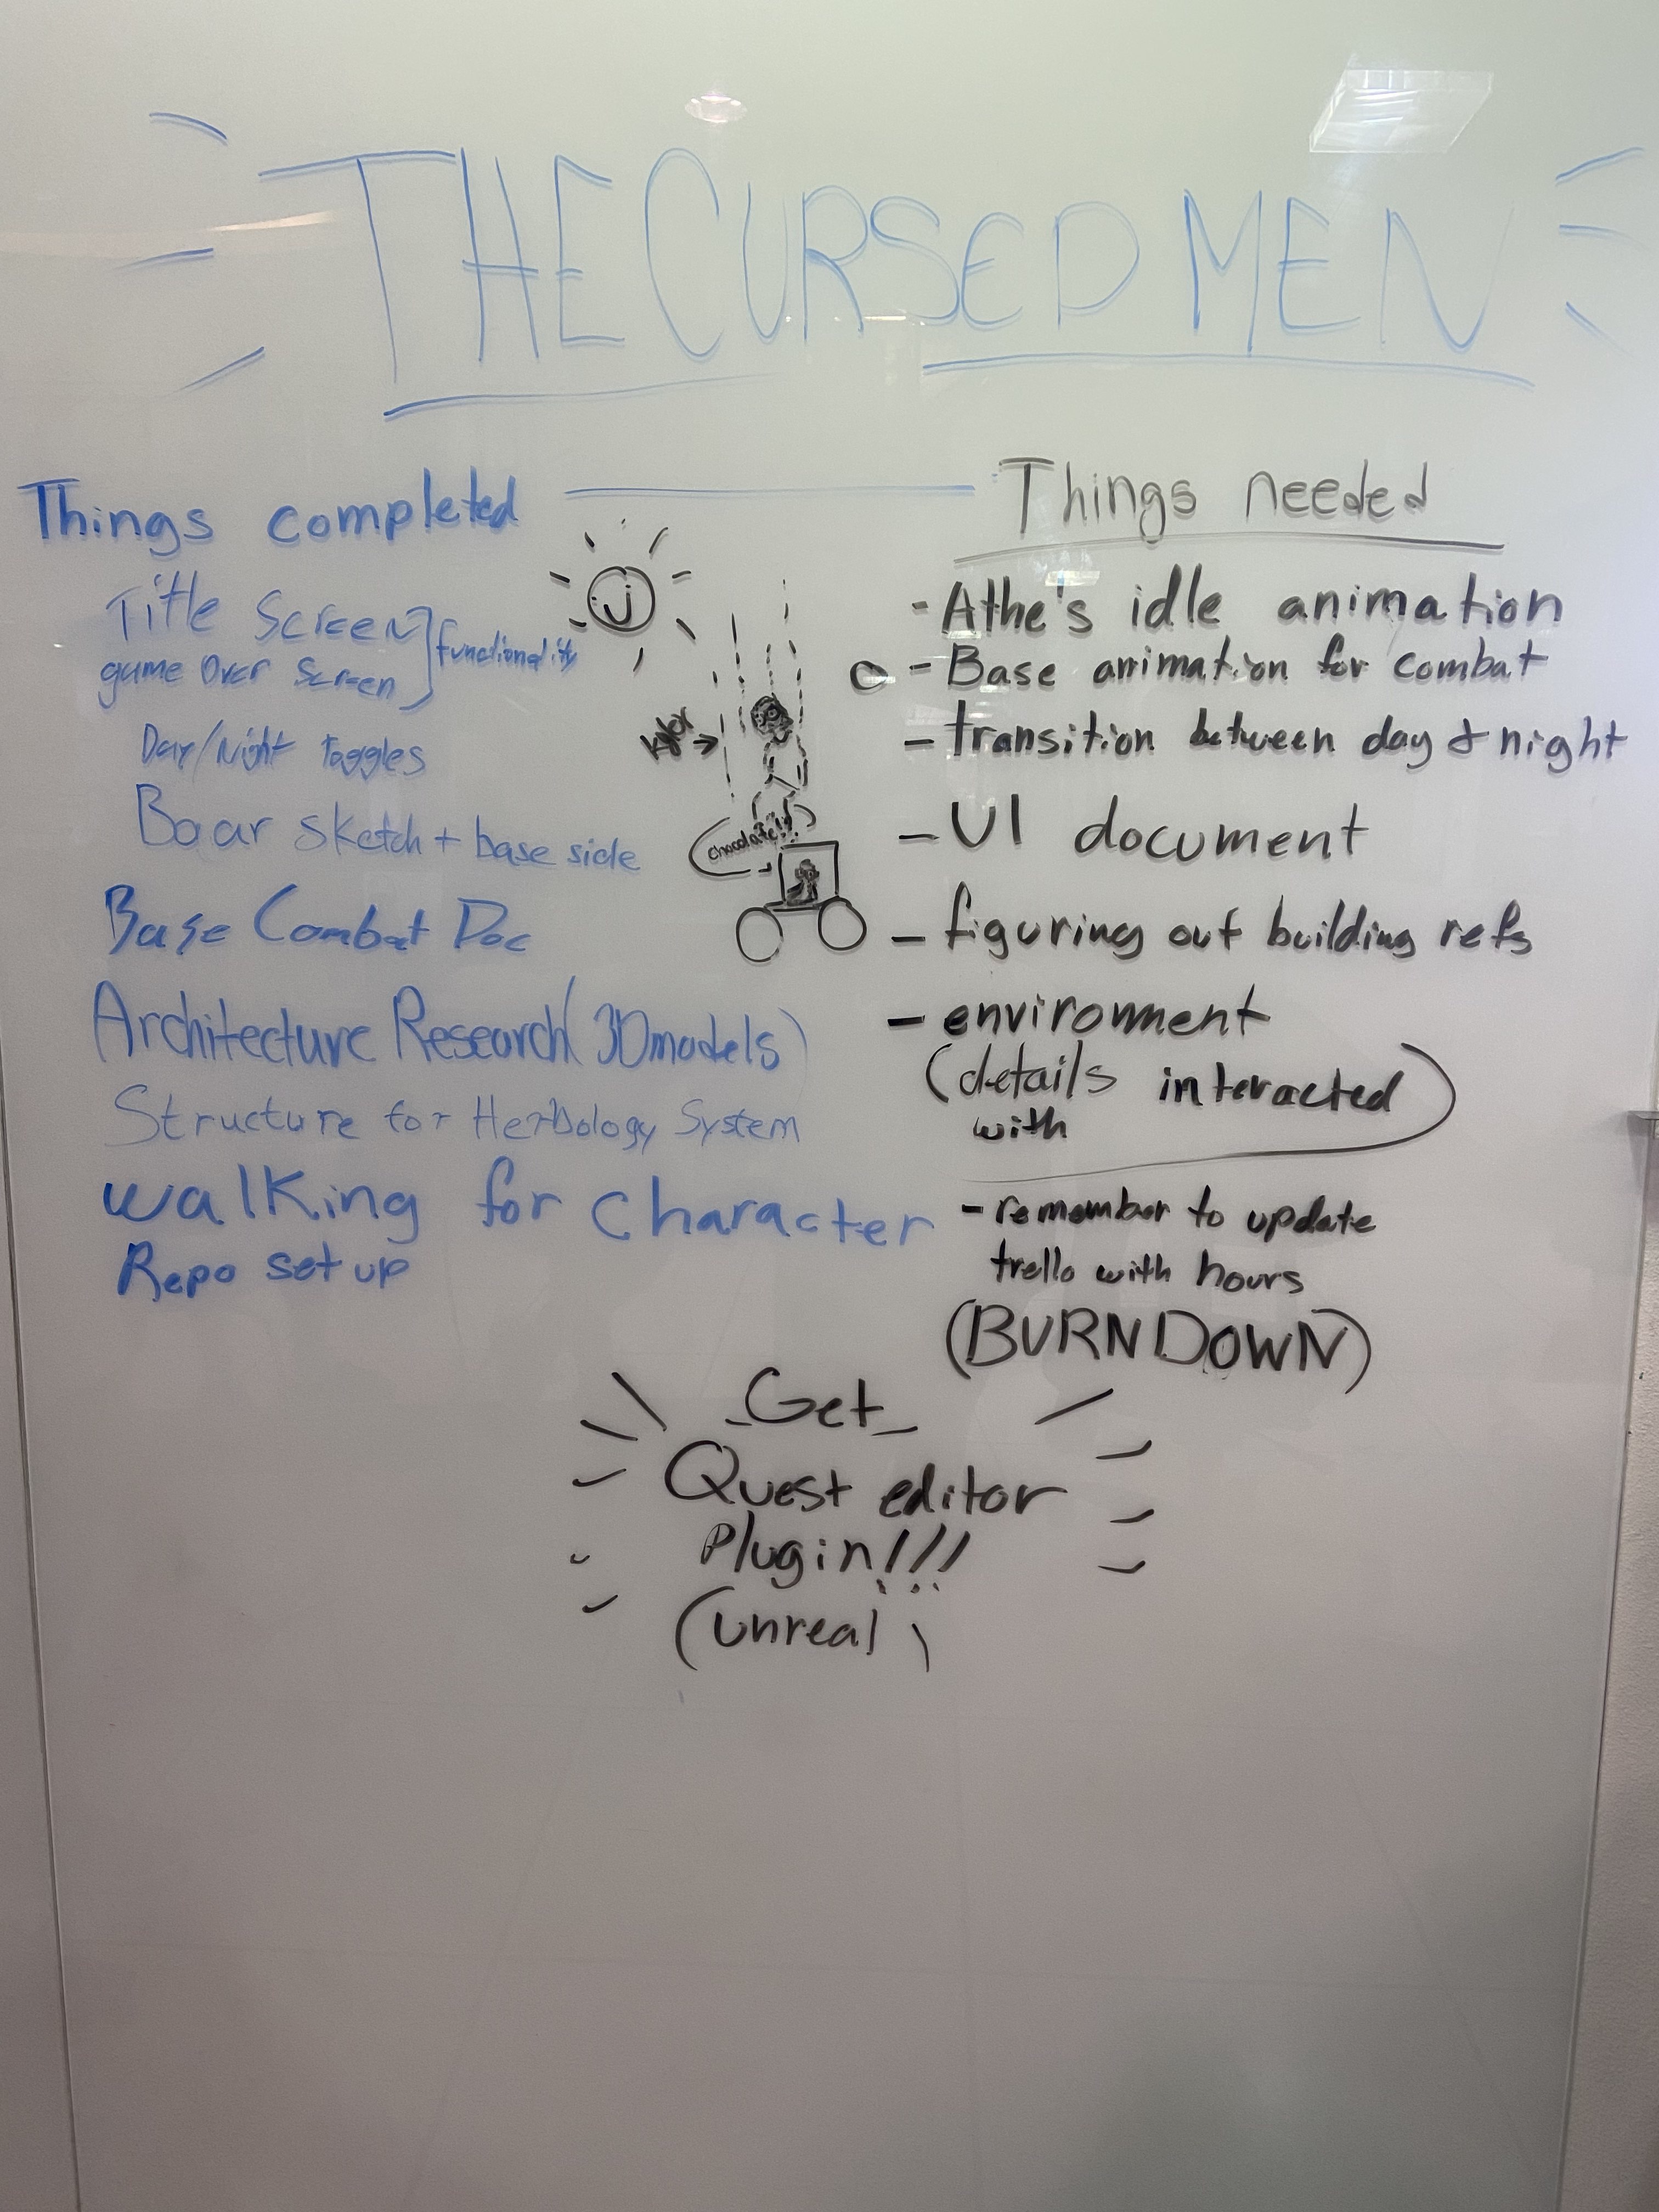 THE CURSED MEN
Things completed
Title Screen
game Over Screen
functionality
Day/Night toggles
Boar sketch + base side
Base Combat Doc
Architecture Research (3D models)
Structure for Herbology System
walking for character
Repo set up
Kylor
chocolate!!!
Things needed
- Athe's idle animation
- Base animation for combat
- transition between day & night
- UI document
- figuring out building refs
- environment
(details interacted)
with
- remember to update
trello with hours
(BURNDOWN)
Get
Quest editor
Plugin!!!
(unreal)